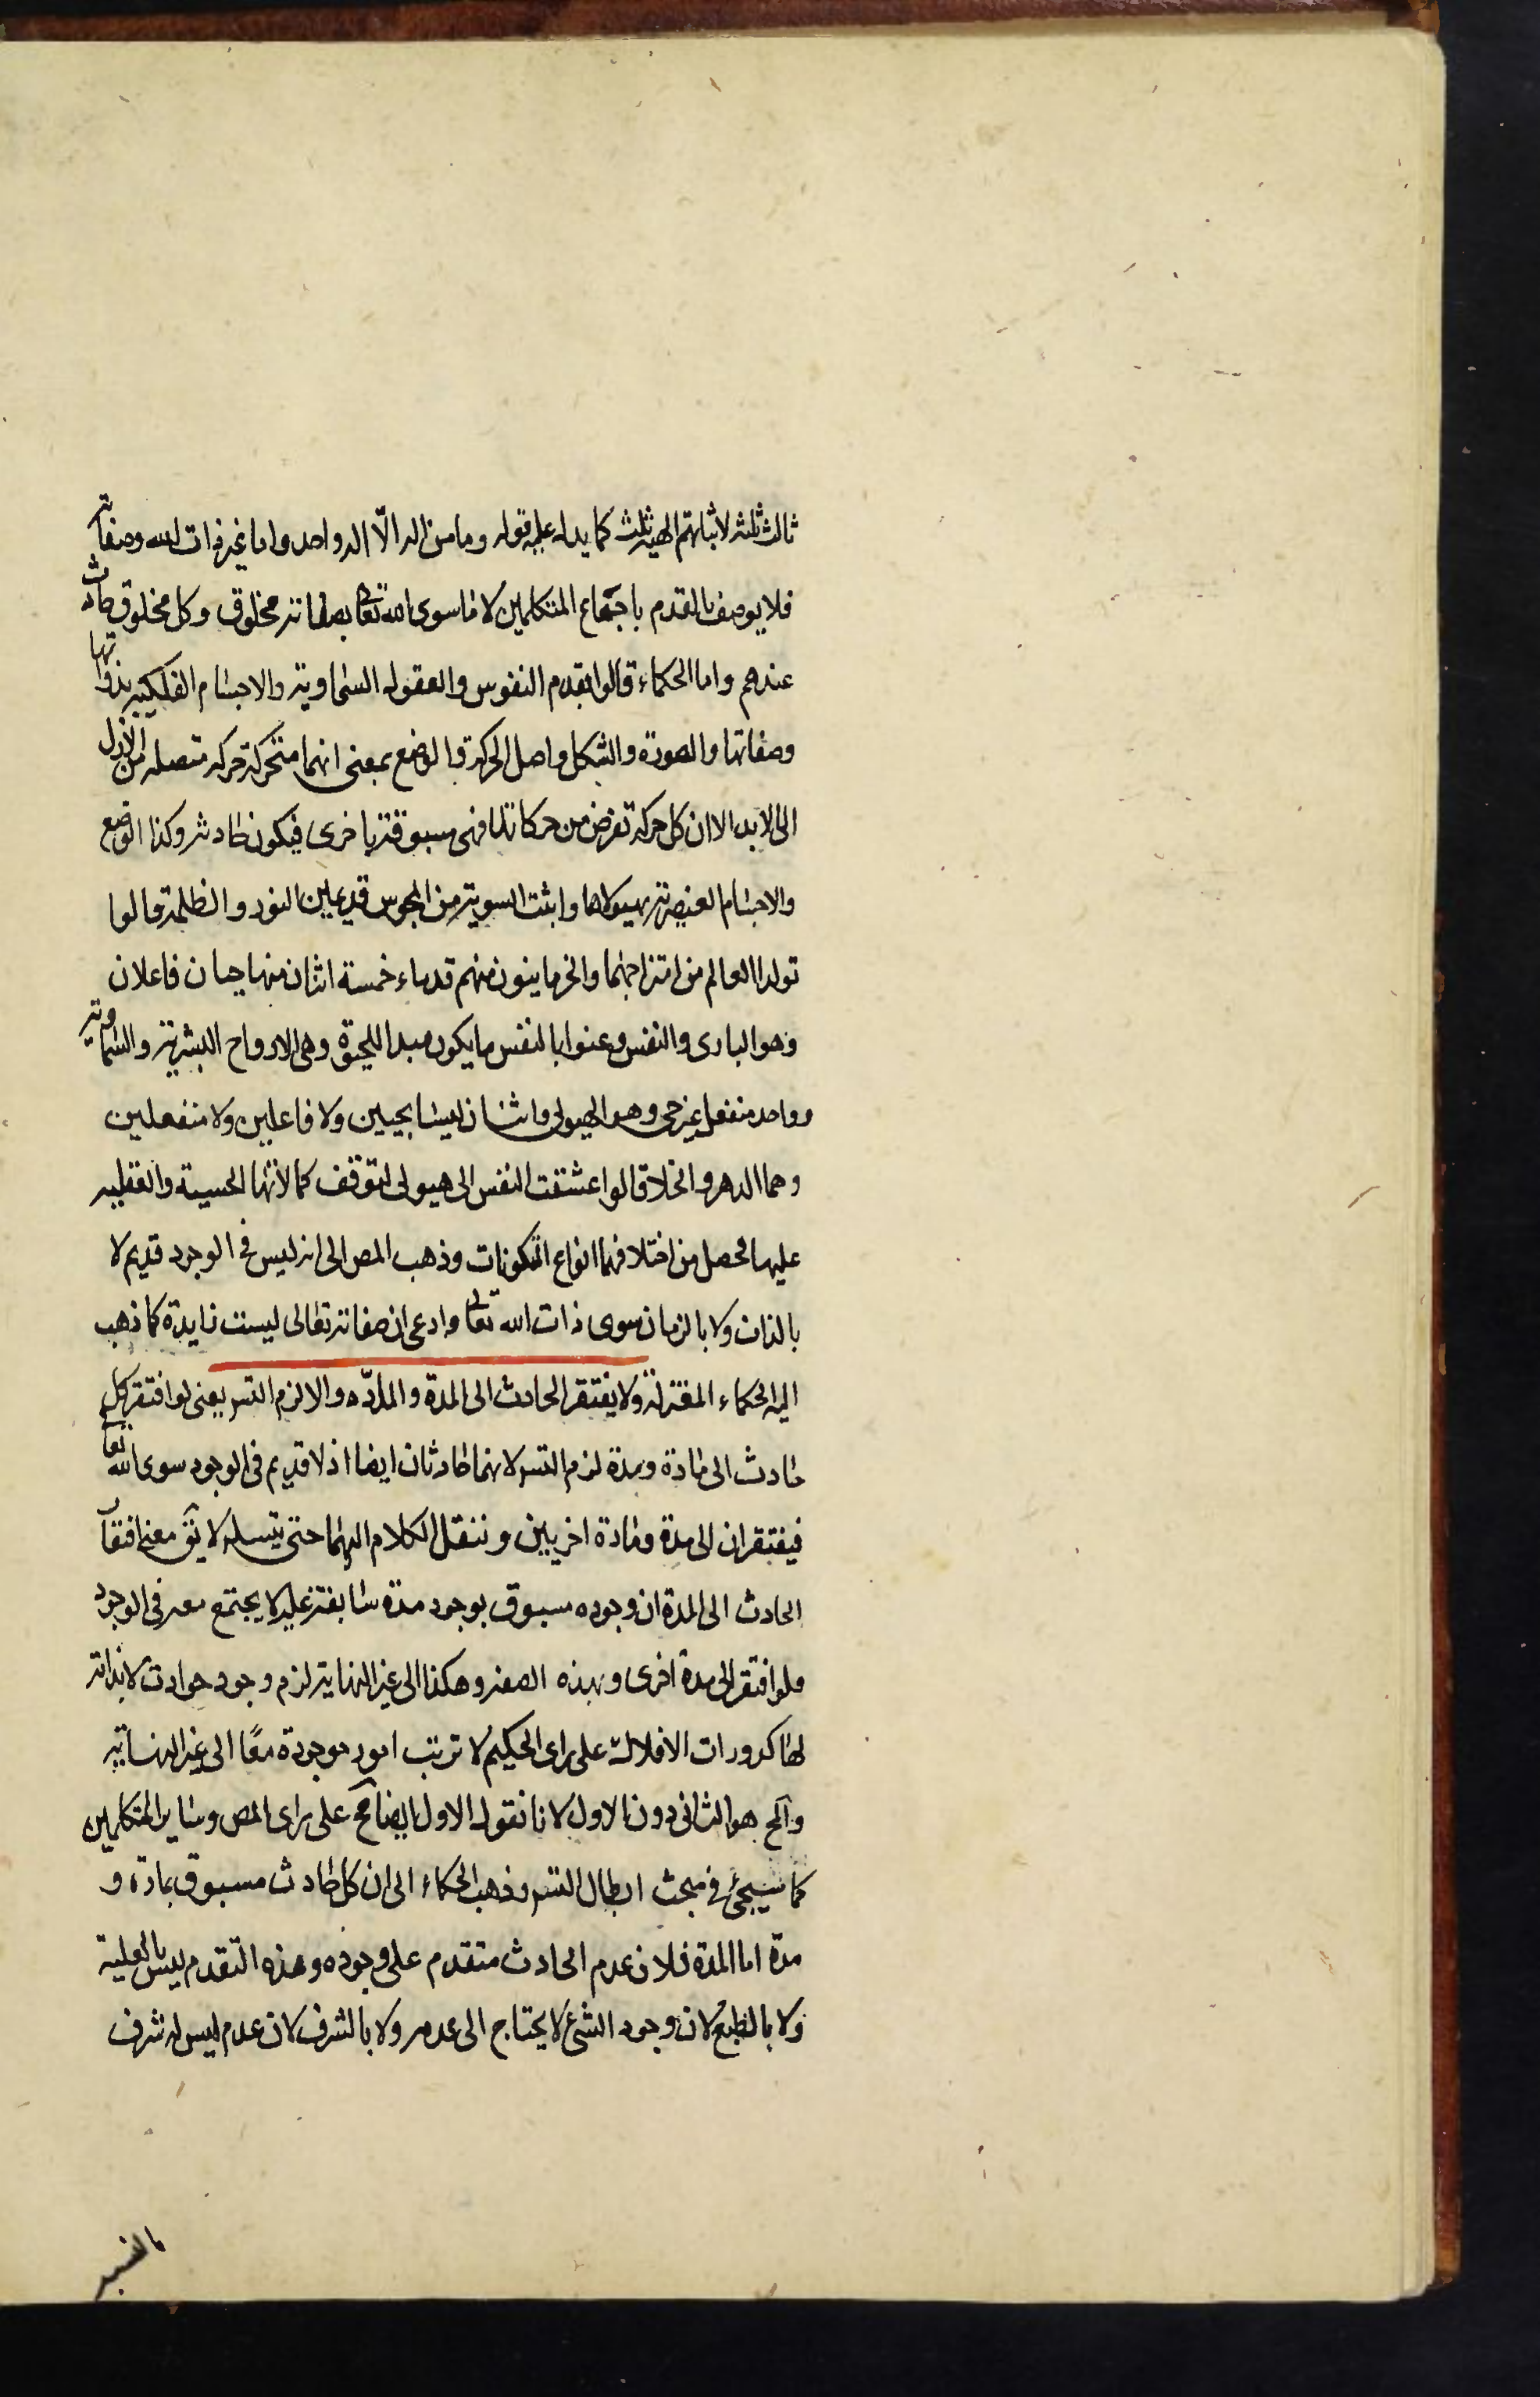 ثالث ثلثه لاثباتهم الهية ثلث كما يدل عليه قوله وما من اله الّا اله واحد واما غير ذات الله وصفاته
فلا يوصف بالقدم باجماع المتكلمين لانما سوى الله تعالى بصفاته مخلوق وكل مخلوق حادث
عندهم واما الحكماء قالوا بقدم النفوس والعقول السماوية والاجسام الفلكيه بذواتها
وصفاتها والصورة والشكل واصل الحركة والوضع بمعنى انهما متحركة حركه متصله من الازل
الى الابد الا ان كل حركة تفرض من حركاتها فهى مسبوقة باخرى فيكون حادثه وكذا الوضع
والاجسام العنصرية بهيولاها واثبت السوية من المجوس قديمين النور والظلمة قالوا
تولد العالم من امتزاجهما والخرمايتون منهم قدماء خمسة اثنان منها حيان فاعلان
وهو البارى والنفس وعنوا بالنفس ما يكون مبدا للحيوة وهى الارواح البشرية والسماوية
وواحد منفعل غير حى وهو الهيولى واثنان ليسا بحيين ولا فاعلين ولا منفعلين
وهما الدهر والخلا قالوا عشقت النفس الى هيولى لتوقف كمالاتها الحسية والعقليه
عليها فحصل من اختلافهما انواع المكونات وذهب المص الى انه ليس فى الوجود قديم لا
بالذات ولا بالزمان سوى ذات الله تعالى وادعى ان صفاته تعالى ليست زايدة كما ذهب
اليه الحكماء المعتزلة ولا يفتقر الحادث الى المدة والمادّه والا لزم التس يعنى لو افتقر كل
حادث الى مادة ومدة لزم التس لانهما حادثان ايضا اذ لا قديم فى الوجود سوى الله تعالى
فيفتقران الى مدة ومادة اخريين وننقل الكلام اليهما حتى يتسلسل لا يق معنى افتقار
الحادث الى المدة ان وجوده مسبوق بوجود مدة سابقة عليه لا يجتمع معه فى الوجود
فلو افتقر الى مدة اخرى وبهذه الصفه وهكذا الى غير النهاية لزم وجود حوادث لا بداية
لها كدورات الافلاك على راى الحكيم لا ترتب امور موجودة معًا الى غير النهاية
والمح هو الثانى دون الاول لانا نقول الاول ايضا مح على راى المص وساير المتكلمين
كما سيجئ فى مبحث ابطال التس وذهب الحكماء الى ان كل حادث مسبوق بمادة و
مدة اما المدة فلان عدم الحادث متقدم على وجوده وهذه التقدم ليس بالعلية
ولا بالطبع لان وجود الشئ لا يحتاج الى عدمه ولا بالشرف لان عدم ليس له شرف
بالنسبه